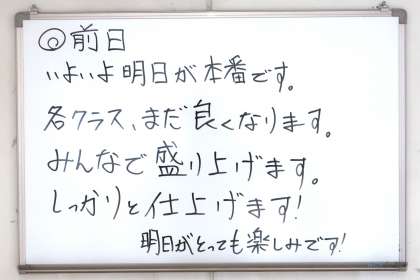 ◎前日
いよいよ明日が本番です。
各クラス、まだ良くなります。
みんなで盛り上げます。
しっかりと仕上げます!
明日がとっても楽しみです!